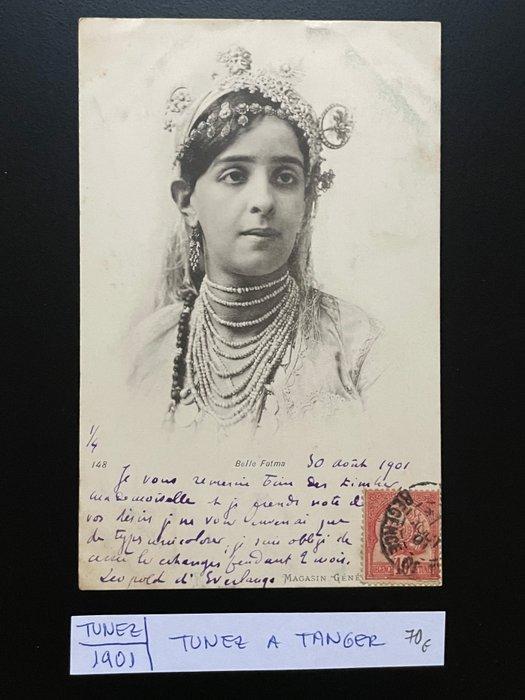 1/4
148 Belle Fatma 30 août 1901
Je vous remercie bien des timbres
mademoiselle et je prends note de
vos désirs je ne vous enverrai que
de types unicolores, je suis obligé de
cesser les échanges pendant 2 mois.
Leopold d' MAGASIN GÉNÉ
REGENCE
TUNEZ
1901
TUNEZ A TANGER 70€